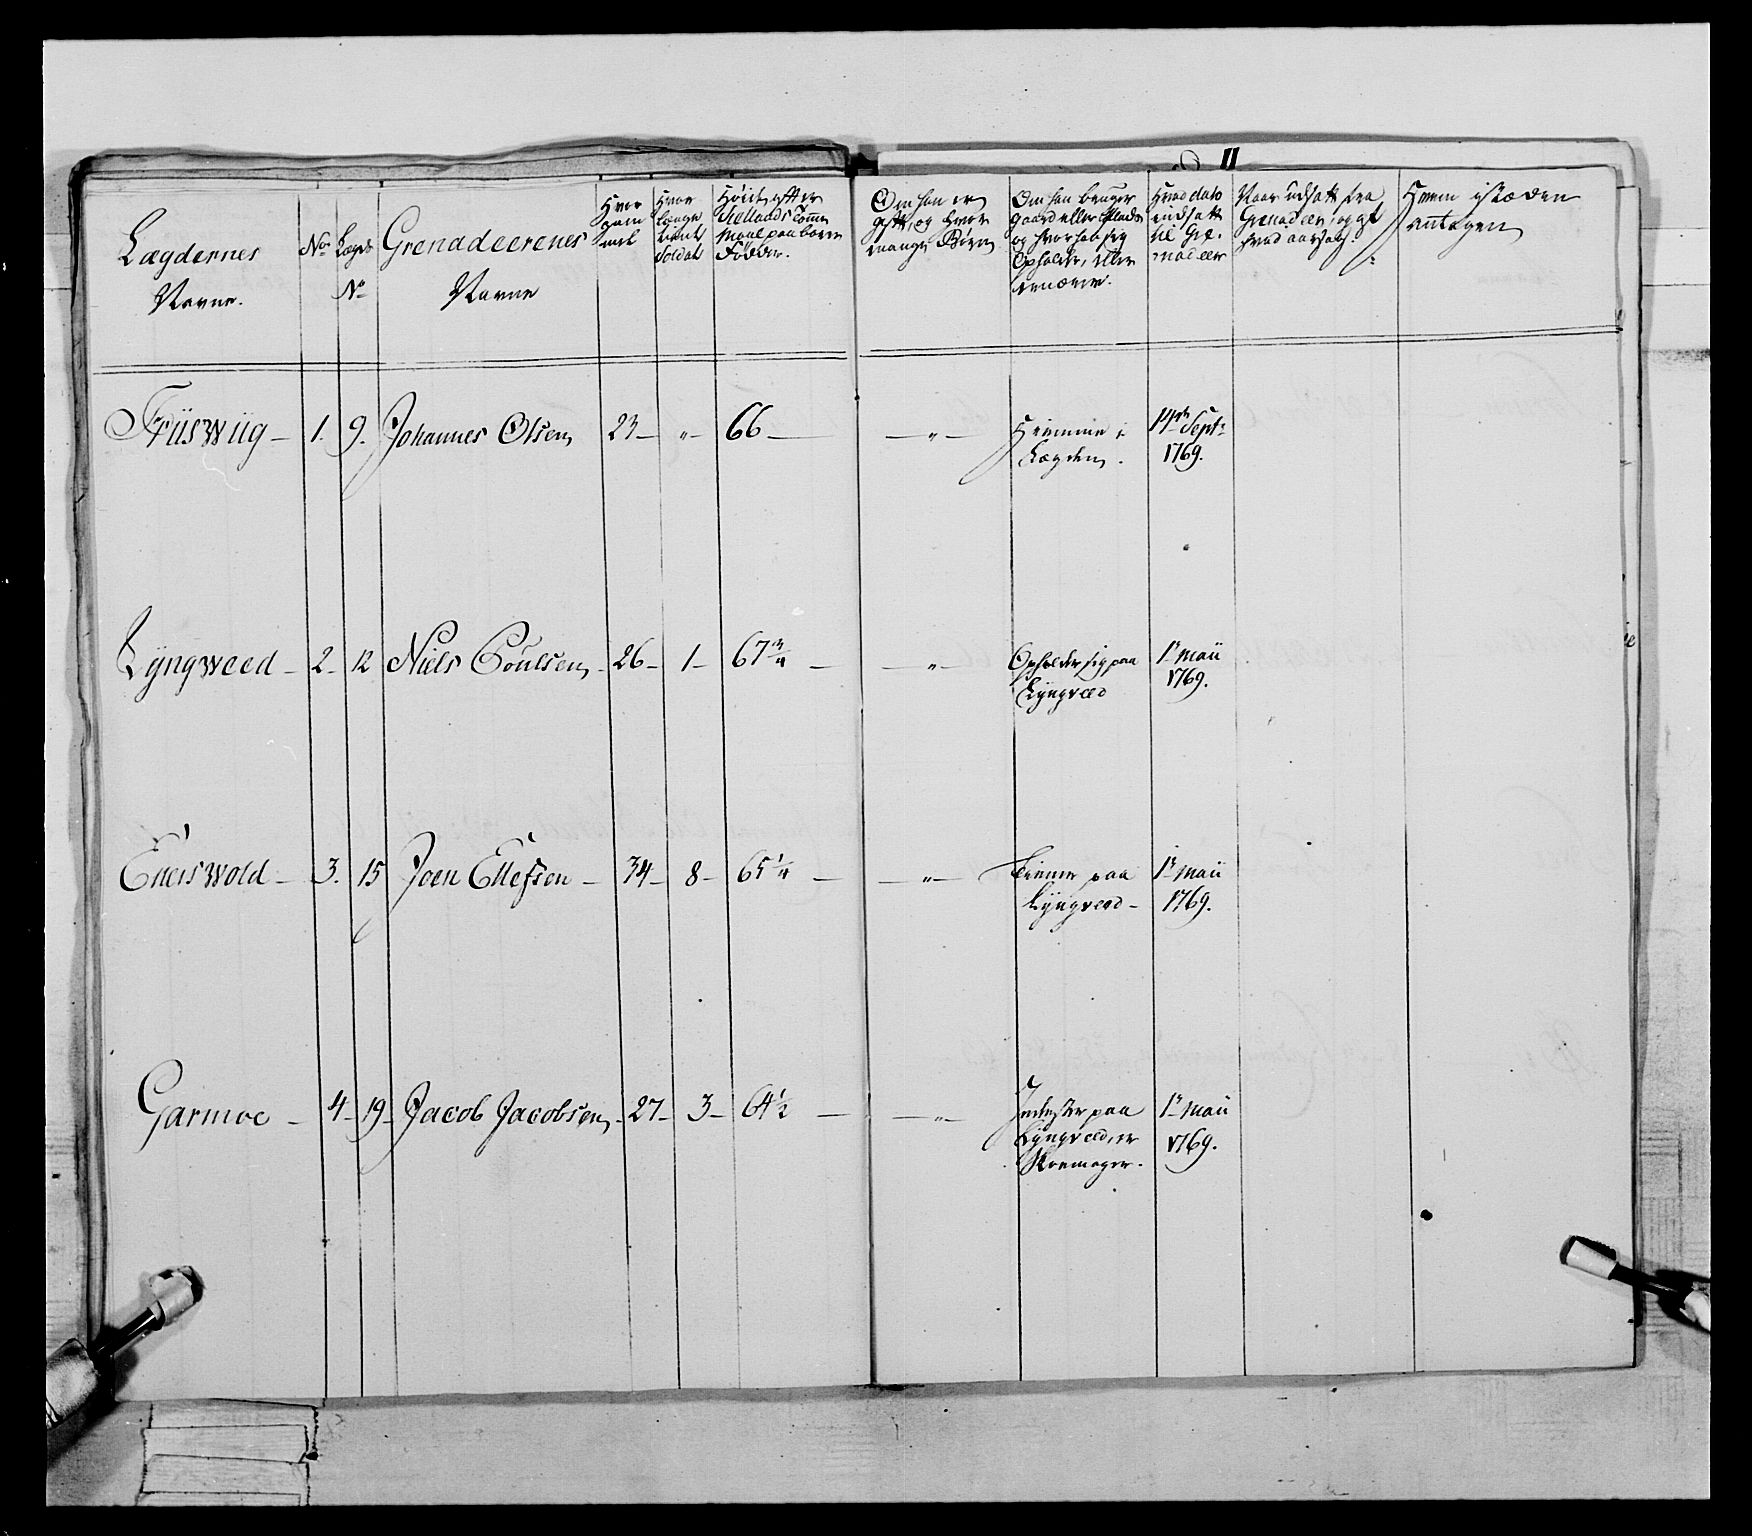 11
Lægdernes
Navne.
No
Lægds
No
Grenadeerenes
Navne
Hvor
gam
mel
Hvor
længe
tient
Soldat
Høide efter
Siellands Tomme
Maal paa bare
Fødder.
Om han er
gift, og hvor
mange Børn
Om han bruger
gaard eller Plads
og hvor han sig
Opholder, eller
ernærer.
Hvad dato
indsatt
til Gre-
nadeer
Naar udsatt fra
Grenadeer, og af
hvad aarsag.
Hvem i stæden
antagen
Friiswiig - 1. 9. Johannes Olsen 23 - " - 66 - - " - Hiemme i 14de Septr
Lægden. 1769.
Lyngweed - 2 - 12 Niels Poulsen - 26 - 1 - 67 3/4 - - " - Opholder sig paa 1r maii
Lyngveed 1769.
Enerswold - 3. 15 Joen Ellefsen - 34 - 8 - 65 1/4 - - " - tiener paa 1r maii
Lyngveed - 1769.
Garmoe - 4 - 19 - Jacob Jacobsen - 27 - 3 - 64 1/2 - - " - Inderster paa 1r maii
Lyngveed, er 1769.
Skoemager.